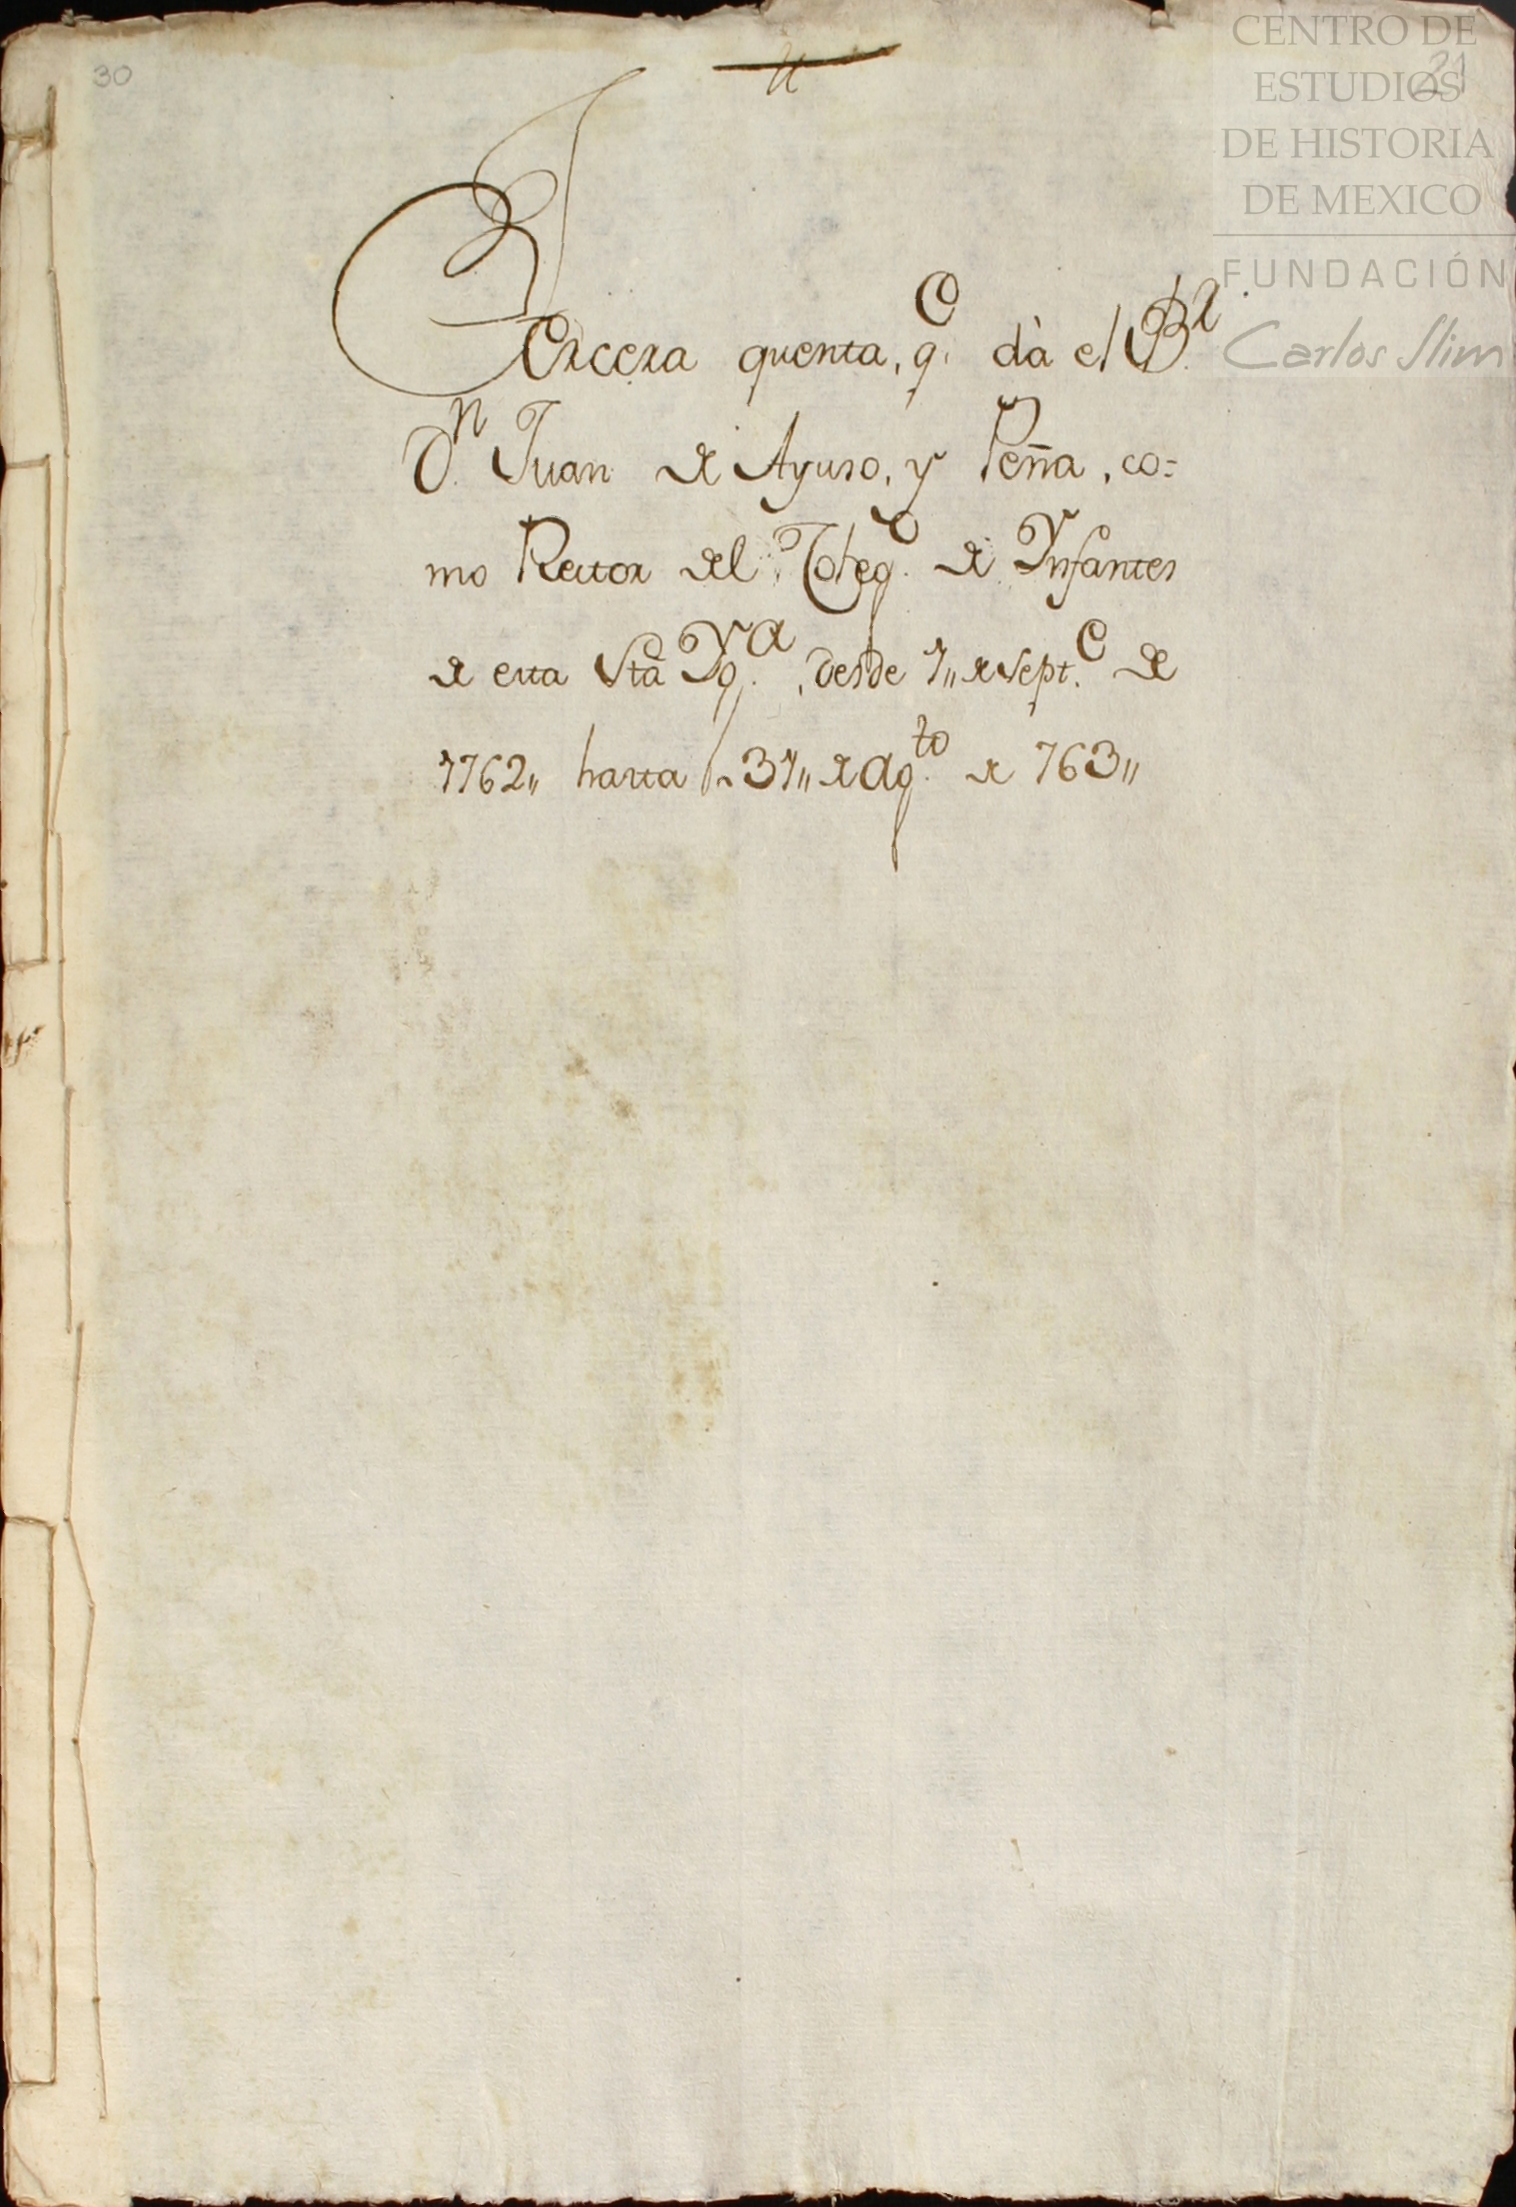 30
CENTRO DE
ESTUDIOS
DE HISTORIA
DE MEXICO
FUNDACIÓN
Carlos Slim
21
Tercera quenta, q.e dà el B.r
D.n Juan de Ayuso, y Peña, co=
mo Rector del Coleg.o de Ynfantes
de esta Sta Yg.a, desde 1,, de Sept.e de
1762,, hasta 31,, de Ag.to de 763,,